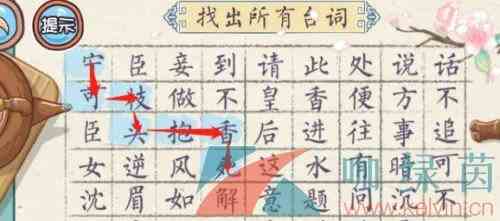 提示
找出所有台词
宁臣妾到请此处说话
可枝做不皇香便方不
臣头抱香后进往事追
女逆风死这水有暗可
沈眉如解意题问沉不
咖绿茵
www.kelvin.cn